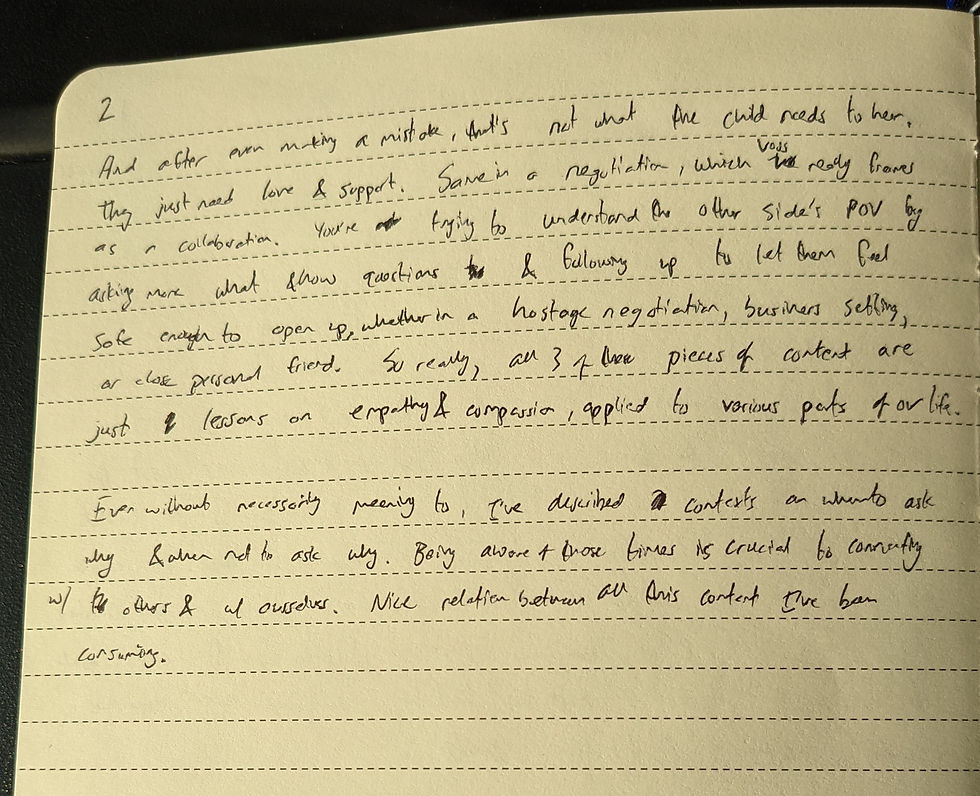 2
And after even making a mistake, that's not what the child needs to hear.
They just need love & support. Same in a negotiation, which Voss really frames
as a collaboration. You're trying to understand the other side's POV by
asking more what & how questions & following up to let them feel
safe enough to open up, whether in a hostage negotiation, business setting,
or close personal friend. So really, all 3 of these pieces of content are
just lessons on empathy & compassion, applied to various parts of our life.
Even without necessarily meaning to, I've described contexts on when to ask
why & when not to ask why. Being aware of those times is crucial to connecting
w/ others & w/ ourselves. Nice relation between all this content I've been
consuming.